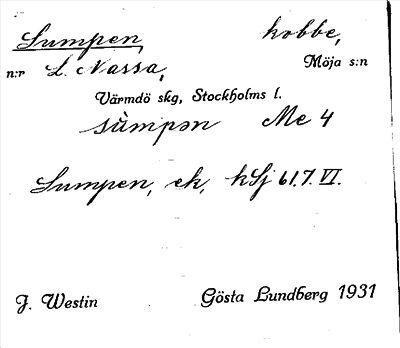 Lumpen, kobbe,
n:r L. Nassa, Möja s:n
Värmdö skg, Stockholms l.
sùmpən Me 4
Lumpen, ek, kSj 61.7.VI.
J. Westin Gösta Lundberg 1931